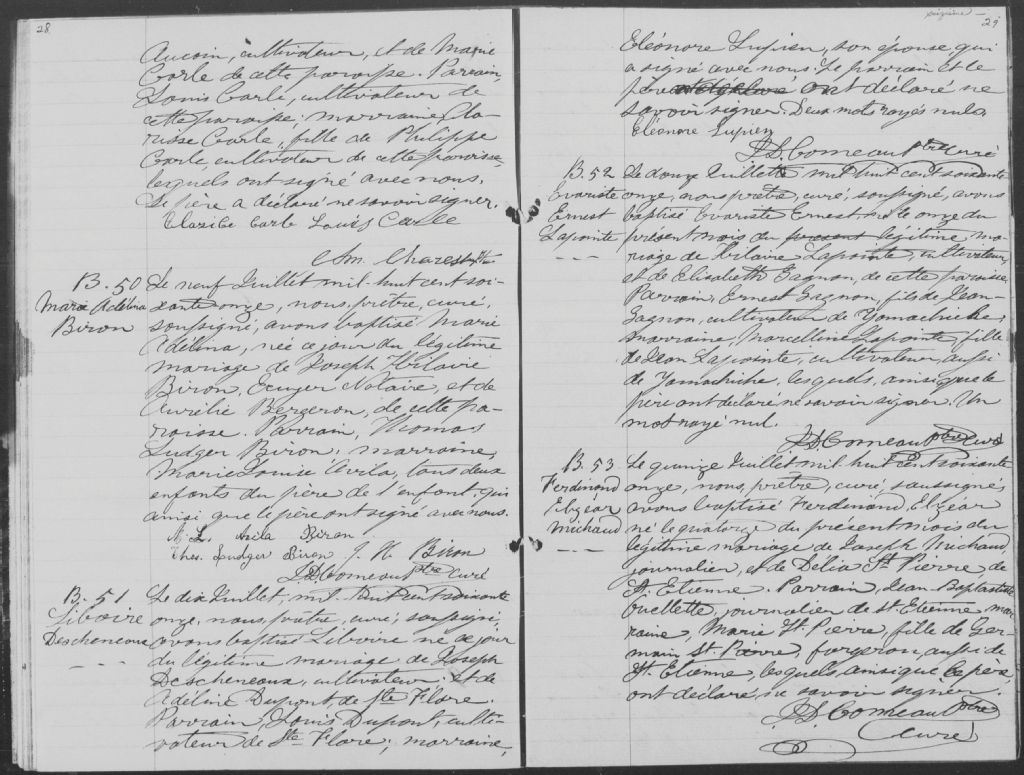 28
Aucoin, cultivateur, et de Marie
Carle de cette paroisse. Parrain,
Louis Carle, cultivateur de
cette paroisse; marraine, Cla-
risse Carle, fille de Philippe
Carle, cultivateur de cette paroisse,
lesquels ont signé avec nous.
Le père a déclaré ne savoir signer.
Clarise Carle Louis Carle
Charest
B. 50
Marie Adélina
Biron
Le neuf Juillet mil-huit cent soi-
xante onze, nous, prêtre, curé,
soussigné, avons baptisé Marie
Adélina, née ce jour du légitime
mariage de Joseph Hilaire
Biron, Ecuyer Notaire, et de
Aurélie Bergeron, de cette pa-
roisse. Parrain, Thomas
Ludger Biron, marraine,
Marie Louise Avila, tous deux
enfants du père de l'enfant, qui
ainsi que le père ont signé avec nous.
M. L. Avila Biron
Thos. Ludger Biron J. H. Biron
J. D. Comeau ptre curé
B. 51
Liboire
Descheneaux
Le dix Juillet, mil-huit cent soixante
onze, nous, prêtre, curé, soussigné,
avons baptisé Liboire né ce jour
du légitime mariage de Joseph
Descheneaux, cultivateur et de
Adéline Dupont, de Ste Flore.
Parrain, Louis Dupont, culti-
vateur de Ste Flore; marraine,
29
Eléonore Lupien, son épouse, qui
a signé avec nous. Le parrain et le
père ont déclaré ne
savoir signer. Deux mots rayés nuls.
Eléonore Lupien
J. D. Comeau Ptre Curé
B. 52
Evariste
Ernest
Lapointe
Le douze Juillet mil huit cent soixante
onze, nous prêtre, curé, soussigné, avons
baptisé Evariste Ernest né le onze du
présent mois du present légitime ma-
riage de Hilaire Lapointe, cultivateur,
et de Elisabeth Gagnon, de cette paroisse.
Parrain, Ernest Gagnon, fils de Jean
Gagnon, cultivateur de Yamachiche;
marraine, Marcelline Lapointe, fille
de Jean Lapointe, cultivateur, aussi
de Yamachiche, lesquels, ainsi que le
père ont déclaré ne savoir signer. Un
mot rayé nul.
J. D. Comeau ptre Curé
B. 53
Ferdinand
Elzéar
Michaud
Le quinze Juillet mil huit cent soixante
onze, nous, prêtre, curé, soussigné,
avons baptisé Ferdinand, Elzéar
né le quatorze du présent mois du
légitime mariage de Joseph Michaud,
journalier, et de Délia St Pierre, de
St. Etienne. Parrain, Jean-Baptiste
Ouellette, journalier de St Etienne; mar-
raine, Marie St. Pierre, fille de Ger-
main St. Pierre, forgeron, aussi de
St. Etienne, lesquels, ainsi que le père,
ont déclaré ne savoir signer.
J. D. Comeau ptre
Curé